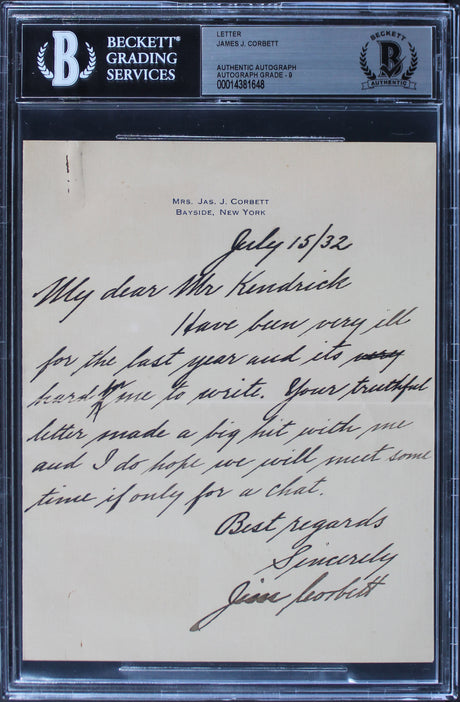 BECKETT®
GRADING
SERVICES
LETTER
JAMES J. CORBETT
AUTHENTIC AUTOGRAPH
AUTOGRAPH GRADE - 9
00014381648
BECKETT
B
AUTHENTIC
MRS. JAS. J. CORBETT
BAYSIDE, NEW YORK
July 15/32
My dear Mr Kendrick
Have been very ill
for the last year and its very
hard for me to write. Your truthful
letter made a big hit with me
and I do hope we will meet some
time if only for a chat.
Best regards
Sincerely
Jim Corbett